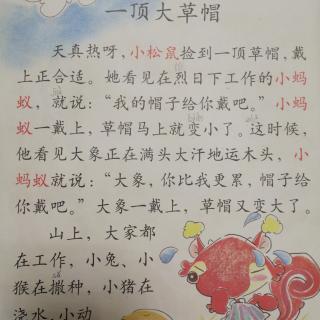 一顶大草帽
天真热呀，小松鼠捡到一顶草帽，戴
上正合适。她看见在烈日下工作的小蚂
蚁，就说：“我的帽子给你戴吧。”小蚂
蚁一戴上，草帽马上就变小了。这时候，
他看见大象正在满头大汗地运木头，小
蚂蚁就说：“大象，你比我更累，帽子给
你戴吧。”大象一戴上，草帽又变大了。
山上，大家都
在工作，小兔、小
猴在撒种，小猪在
浇水，小动